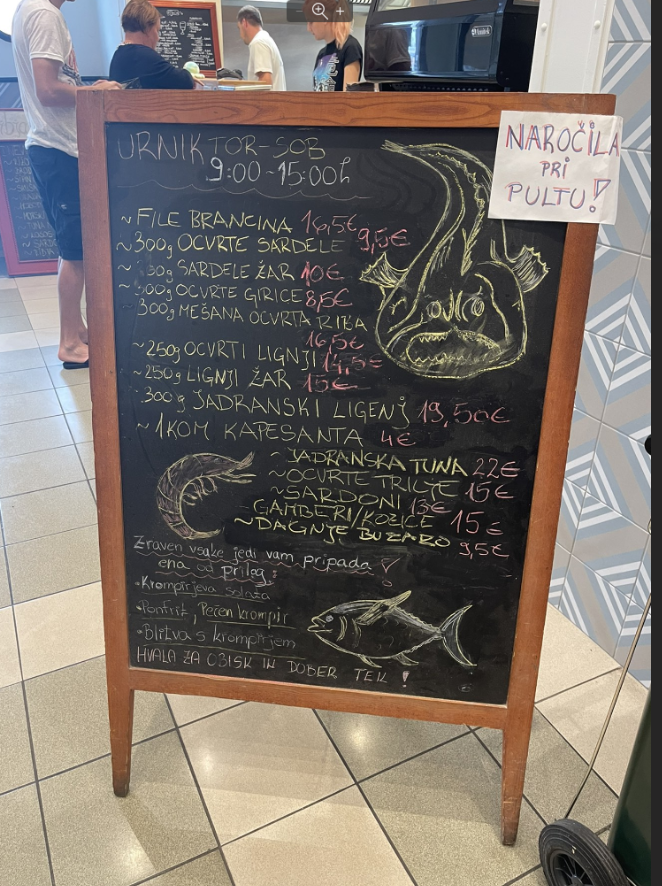 URNIK TOR-SOB
9:00-15:00h
NAROČILA
PRI
PULTU!
~FILE BRANCINA 16,5€
~300g OCVRTE SARDELE 9,5€
~ SARDELE ŽAR 10€
~300g OCVRTE GIRICE 8,5€
~300g MEŠANA OCVRTA RIBA
16,5€
~250g OCVRTI LIGNJI 14,5€
~250g LIGNJI ŽAR 15€
~300g JADRANSKI LIGENJ 19,50€
~1KOM KAPESANTA 4€
~JADRANSKA TUNA 22€
~OCVRTE TRILJE 15€
~SARDONI 13€
GAMBERI/KOZICE 15€
~DAGNJE BUZARO 9,5€
Zraven vsake jedi vam pripada
ena od prilog:
•Krompirjeva solata
•Pomfrit, Pečen krompir
•Blitva s krompirjem
HVALA ZA OBISK IN DOBER TEK!